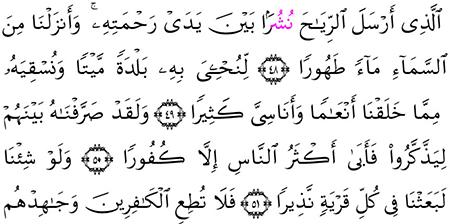 ٱلَّذِى أَرْسَلَ ٱلرِّيَـٰحَ نُشُرًۢا بَيْنَ يَدَىْ رَحْمَتِهِۦۚ وَأَنزَلْنَا مِنَ
ٱلسَّمَآءِ مَآءً طَهُورًا ﴿٤٨﴾ لِّنُحْـِۧىَ بِهِۦ بَلْدَةً مَّيْتًا وَنُسْقِيَهُۥ
مِمَّا خَلَقْنَا أَنْعَـٰمًا وَأَنَاسِىَّ كَثِيرًا ﴿٤٩﴾ وَلَقَد صَّرَّفْنَـٰهُ بَيْنَهُمْ
لِيَذَّكَّرُوا۟ فَأَبَىٰ أَكْثَرُ ٱلنَّاسِ إِلَّا كُفُورًا ﴿٥٠﴾ وَلَوْ شِئْنَا
لَبَعَثْنَا فِى كُلِّ قَرْيَةٍ نَّذِيرًا ﴿٥١﴾ فَلَا تُطِعِ ٱلْكَـٰفِرِينَ وَجَـٰهِدْهُم